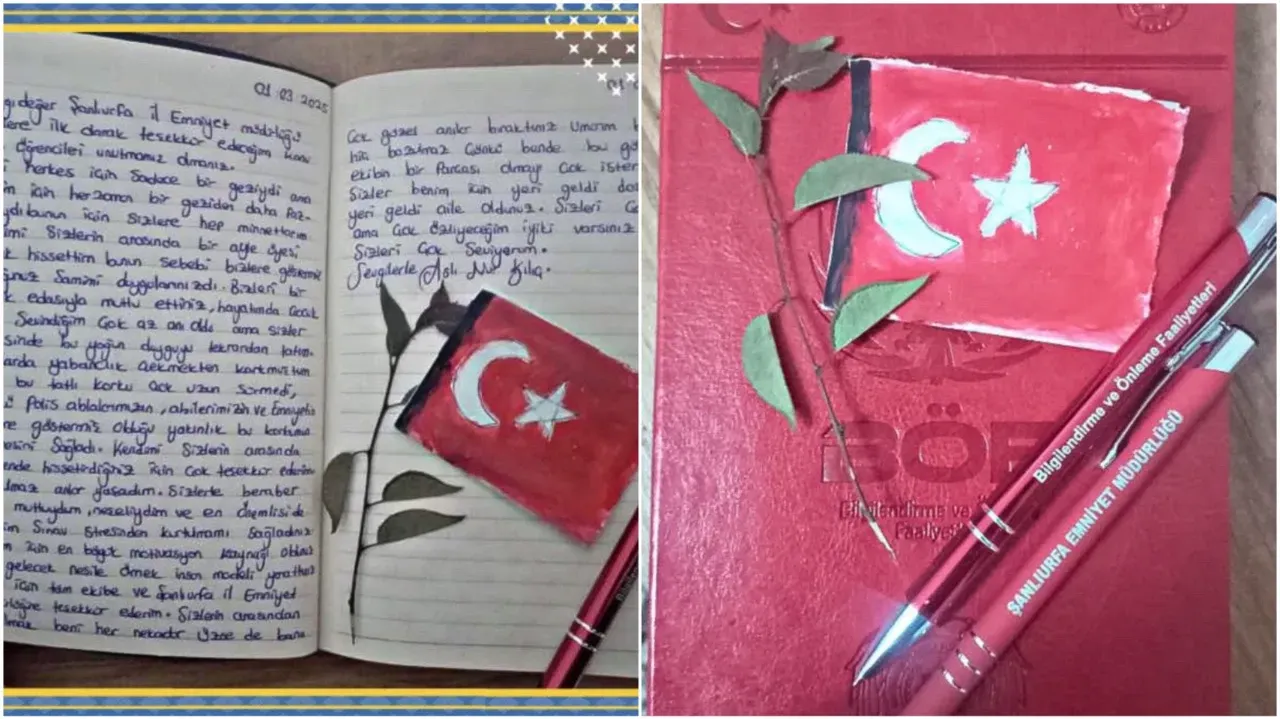 01.03.2025
gıdeğer Şanlıurfa il Emniyet müdürlüğü
ere ilk olarak teşekkür edeceğim konu
öğrencileri unutmamız olmanız.
herkes için Sadece bir geziydi ama
için her zaman bir geziden daha faz-
ydı bunun için sizlere hep minnettarım
imi Sizlerin arasında bir aile üyesi
k hissettim bunun sebebi bizlere gösterme
ğunuz Samimi duygularınızdı. Bizleri bir
k edasıyla mutlu ettiniz, hayatımda Çocuk
Sevindiğim Çok az anı oldu ama sizler
sinde bu yoğun duyguyu tekrardan tattım.
arda yabancılık çekmekten korkmuştum
bu tatlı korku çok uzun Sürmedi,
Polis ablalarımızın, abilerimizin ve Emniyetin
göstermiş olduğu yakınlık bu korkumu
esini Sağladı. Kendimi Sizlerin arasında
ende hissetirdiğiniz için Çok teşekkür ederim
lmaz anılar yaşadım. Sizlerle beraber
mutluydum, neşeliydim ve en önemlisi de
Sınav Stresinden kurtulmamı Sağladınız
için en büyük motivasyon kaynağı oldunuz
gelecek nesile örnek insan modeli yarattınız
için tüm ekibe ve Şanlıurfa il Emniyet
teşekkür ederim. Sizlerin arasından
lmak beni her nekadar Üzse de bana
Çok güzel anılar bıraktınız Umarım
hiç bozulmaz Çünkü bende bu gü
ekibin bir Parçası olmayı Çok ister
Sizler benim için yeri geldi dos
yeri geldi aile Oldunuz. Sizleri
ama Çok özliyeceğim iyiki varsınız
Sizleri Çok Seviyorum.
Sevgilerle Aslı Nur Kılıç.
BÖF
Bilgilendirme ve
Faaliyetl
Bilgilendirme ve Önleme Faaliyetleri
ŞANLIURFA EMNİYET MÜDÜRLÜĞÜ